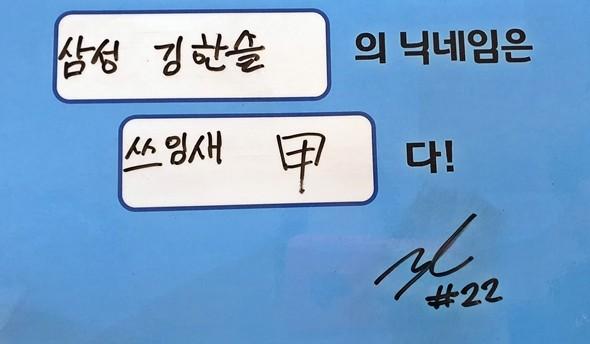 삼성 김한슬 의 닉네임은
쓰임새 甲 다!
#22